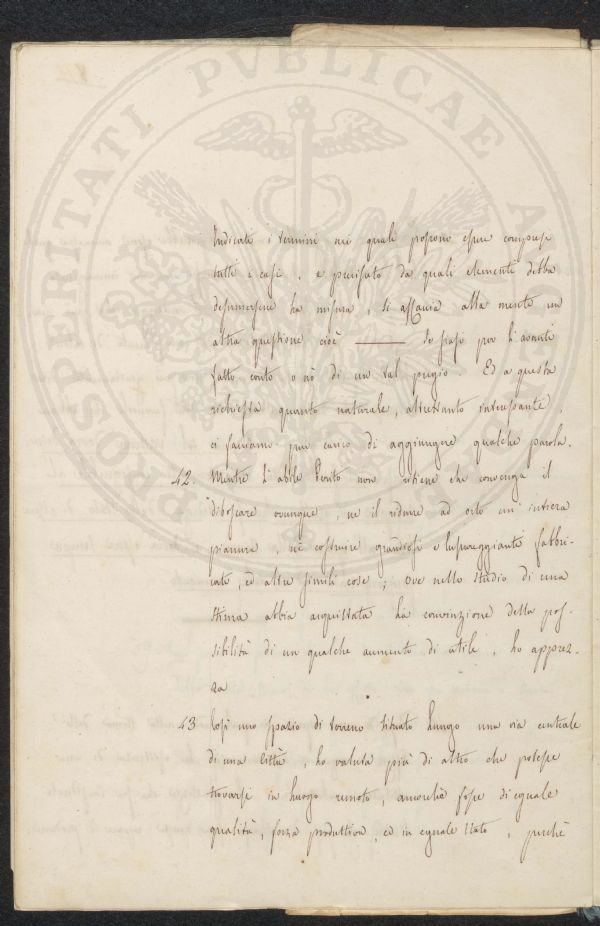 PROSPERITATI PVBLICAE AVGENDAE
Indicati i termini nei quali possono esser compresi
tutti i casi, e precisato da quali elementi debba
desumersene la misura, si affaccia alla mente un
altra questione cioè —— Se siasi per l'avanti
fatto conto o nò di un tal pregio. Ed a questa
richiesta quanto naturale, altrettanto interessante,
ci facciamo pur carico di aggiungere qualche parola.
42. Mentre l'abile Perito non ritiene che convenga il
diboscare ovunque, ne il ridurre ad orto un' intiera
pianura, nè costruire grandiosi e lussureggianti fabbri-
cati, ed altre simili cose; ove nello studio di una
stima abbia acquistata la convinzione della pos-
sibilità di un qualche aumento di utile, lo apprez-
za
43 Così uno spazio di terreno situato lungo una via centrale
di una Città, lo valuta più di altro che potesse
trovarsi in luogo remoto, ancorchè fosse di eguale
qualità, forza produttiva, ed in eguale stato, perchè